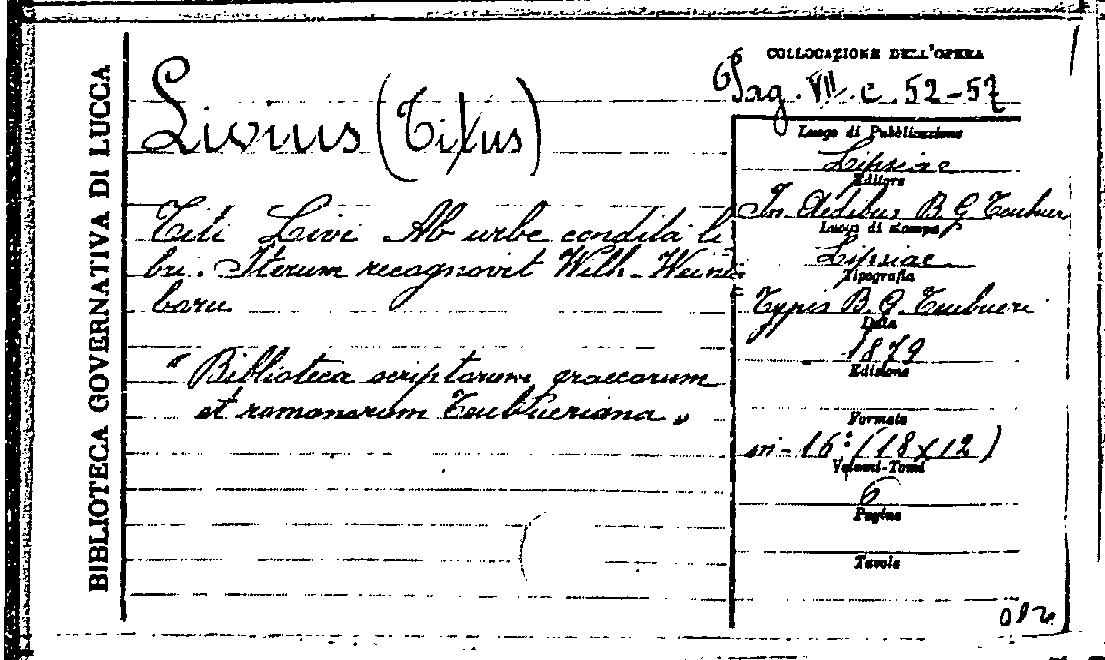 BIBLIOTECA GOVERNATIVA DI LUCCA
Livius (Titus)
Titi Livi Ab urbe condita li
bri. Iterum recognovit Wilh. Weissen
born
"Biblioteca scriptorum graecorum
et romanorum Teubneriana"
COLLOCAZIONE DELL'OPERA
Pag. VII. c. 52-57
Luogo di Pubblicazione
Lipsiae
Editore
In Aedibus B. G. Teubner
Luogo di stampa
Lipsiae
Tipografia
Typis B. G. Teubneri
Data
1879
Edizione
Formato
in-16° (18x12)
Volumi-Tomi
6
Pagine
Tavole